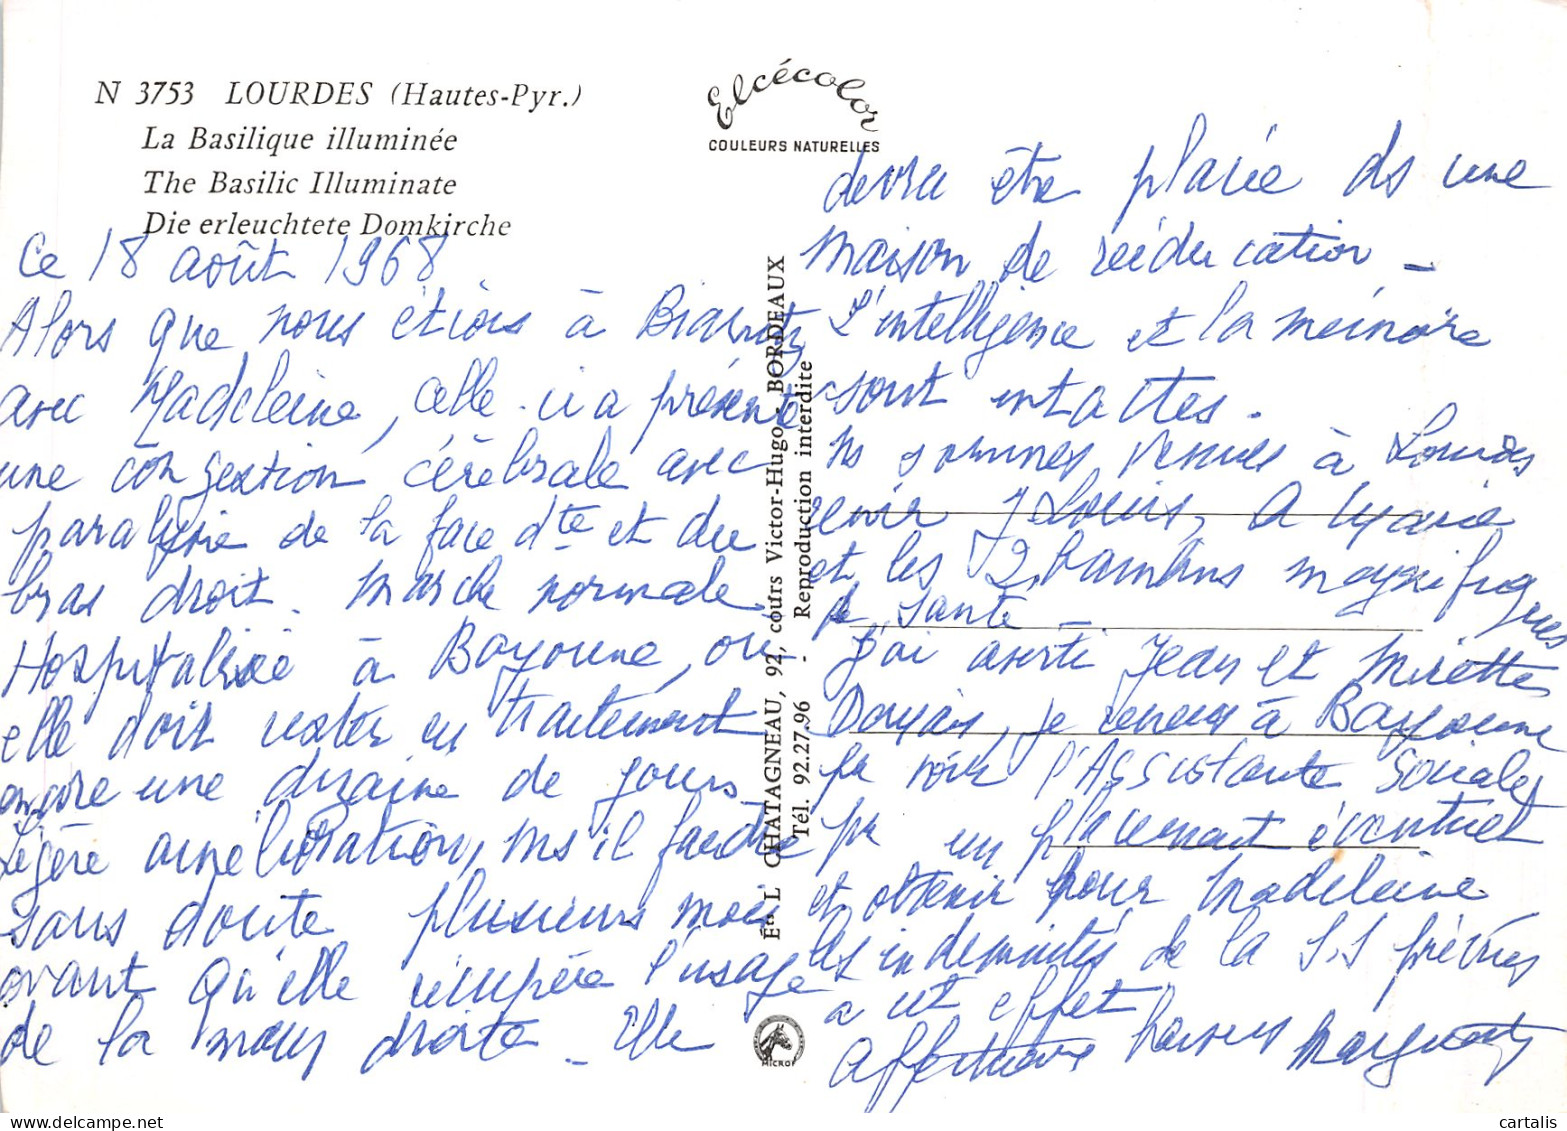 N 3753 LOURDES (Hautes-Pyr.)
La Basilique illuminée
The Basilic Illuminate
Die erleuchtete Domkirche
Elcécolor
COULEURS NATURELLES
Ce 18 août 1968
Alors que nous étions à Biarritz
avec Madeleine, celle-ci a présenté
une congestion cérébrale avec
paralysie de la face dte et du
bras droit. Marche normale
Hospitalisée à Bayonne, où
elle doit rester en traitement
encore une dizaine de jours
Légère amélioration, ms il faudra
sans doute plusieurs mois
avant qu'elle récupère l'usage
de la main droite - Elle
Éts L. CHATAGNEAU, 92, cours Victor-Hugo - BORDEAUX
Tél. 92.27.96 - Reproduction interdite
MICRO
devra être placée ds une
maison de rééducation -
L'intelligence et la mémoire
sont intactes.
Ns sommes venues à Lourdes
voir J Louis, A Marie
et les 2 bambins magnifiques
de santé
J'ai averti Jean et Mirette
je reviens à Bayonne
pr voir l'Assistante Sociale,
pr un placement éventuel
et obtenir pour Madeleine
les indemnités de la S.S prévues
a cet effet
Affectueux baisers
cartalis